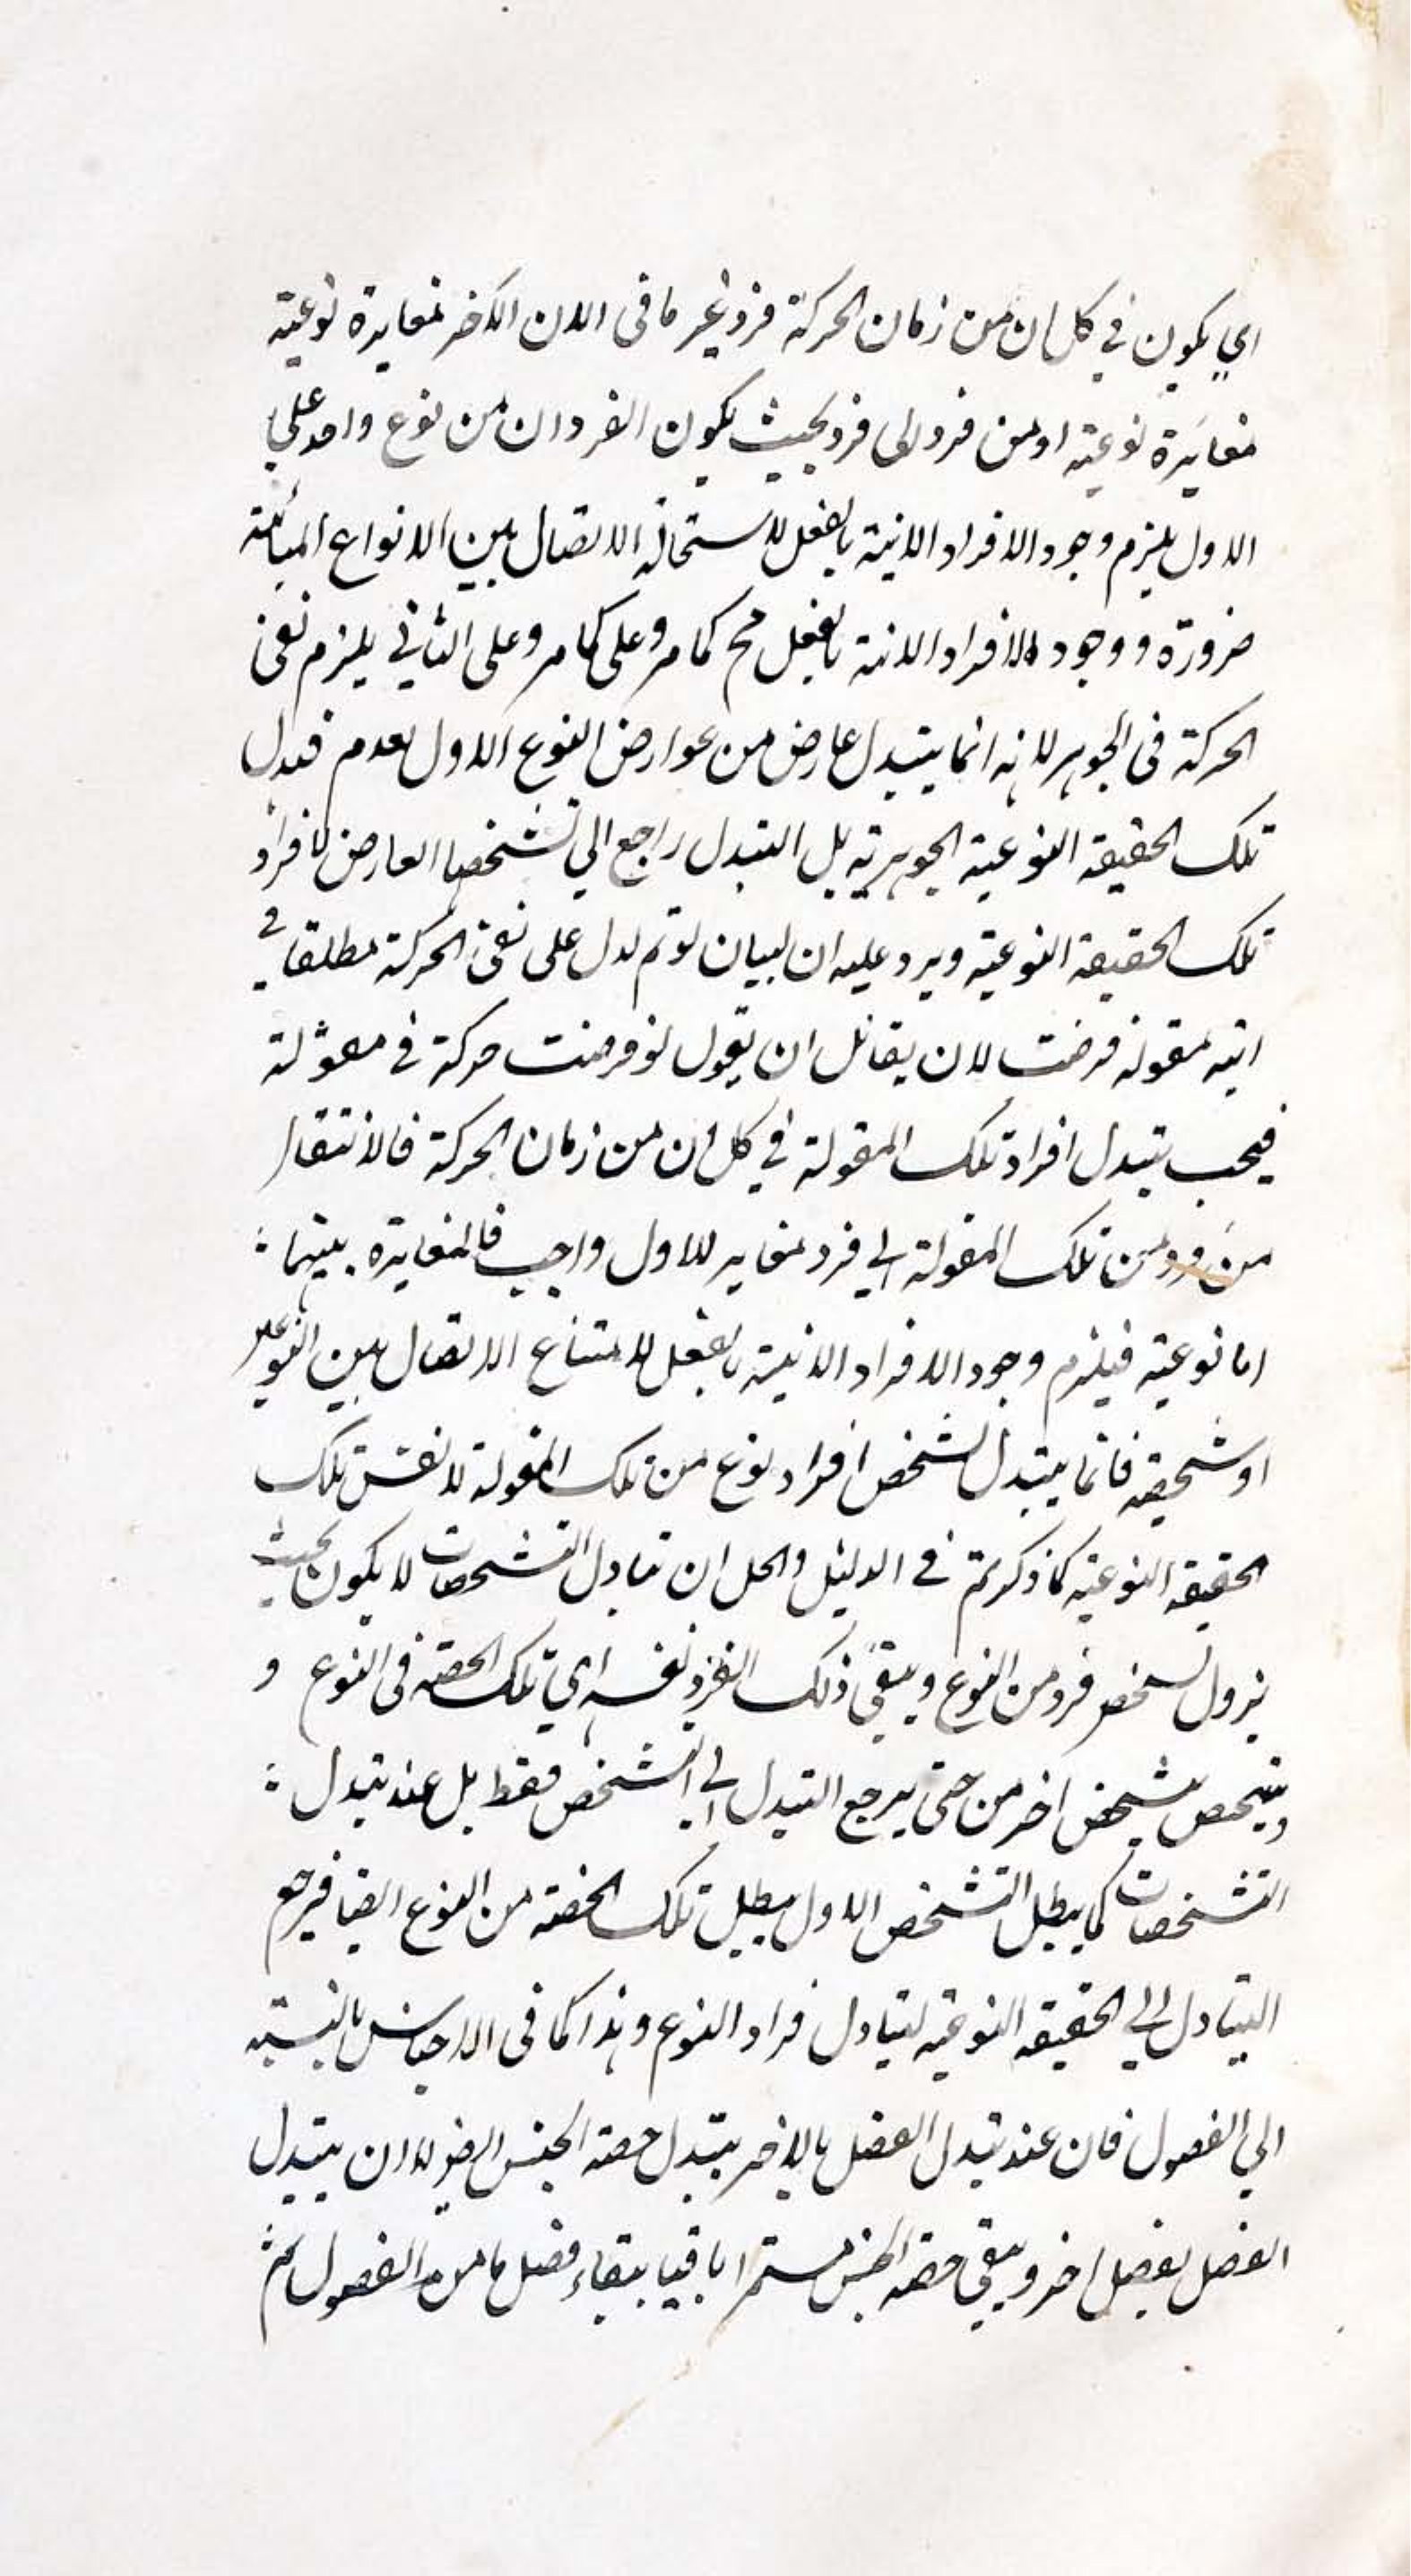 اي يكون في كل ان من زمان الحركة فرد غير ما فى الان الاخر مغايرة نوعية
مغايرة نوعية او من فرد الى فرد بحيث يكون الفردان من نوع واحد على
الاول يلزم وجود الافراد الانية بالفعل لاستحالة الاتصال بين الانواع المتباينة
ضرورة ووجود الافراد الانية بالفعل مح كما مر وعلى كما مر وعلى الثاني يلزم نفى
الحركة فى الجوهر لانه انما يتبدل عارض من عوارض النوع الاول لعدم تبدل
تلك الحقيقة النوعية الجوهرية بل التبدل راجع الي تشخصها العارض لافراد
تلك الحقيقة النوعية ويرد عليه ان البيان لو تم لدل على نفى الحركة مطلقا في
اية مقولة فرضت لان لقائل ان يقول لو فرضت حركة في مقولة
فيجب تبدل افراد تلك المقولة في كل ان من زمان الحركة فالانتقال
من فرد من تلك المقولة الي فرد مغاير للاول واجب فالمغايرة بينهما
اما نوعية فيلزم وجود الافراد الانية بالفعل لامتناع الاتصال بين النوعين
او شخصية فانما يتبدل تشخص افراد نوع من تلك المقولة لا نفس تلك
الحقيقة النوعية كما ذكرتم في الدليل والحل ان تبادل التشخصات لا يكون بحيث
يزول تشخص فرد من النوع ويبقى ذلك الفرد نفسه اي تلك الحصة فى النوع و
ويتشخص بتشخص اخر من حتى يرجع التبدل الي التشخص فقط بل عند تبدل
التشخصات كما يبطل التشخص الاول يبطل تلك الحصة من النوع ايضا فيرجع
التبادل الي الحقيقة النوعية لتبادل افراد النوع وهذا كما فى الاجناس بالنسبة
الي الفصول فان عند تبدل الفصل بالاخر يتبدل حصة الجنس ايضا لا ان يتبدل
الفصل بفصل اخر ويبقى حصة الجنس مستمرا باقيا ببقاء فصل ما من الفصول ثم